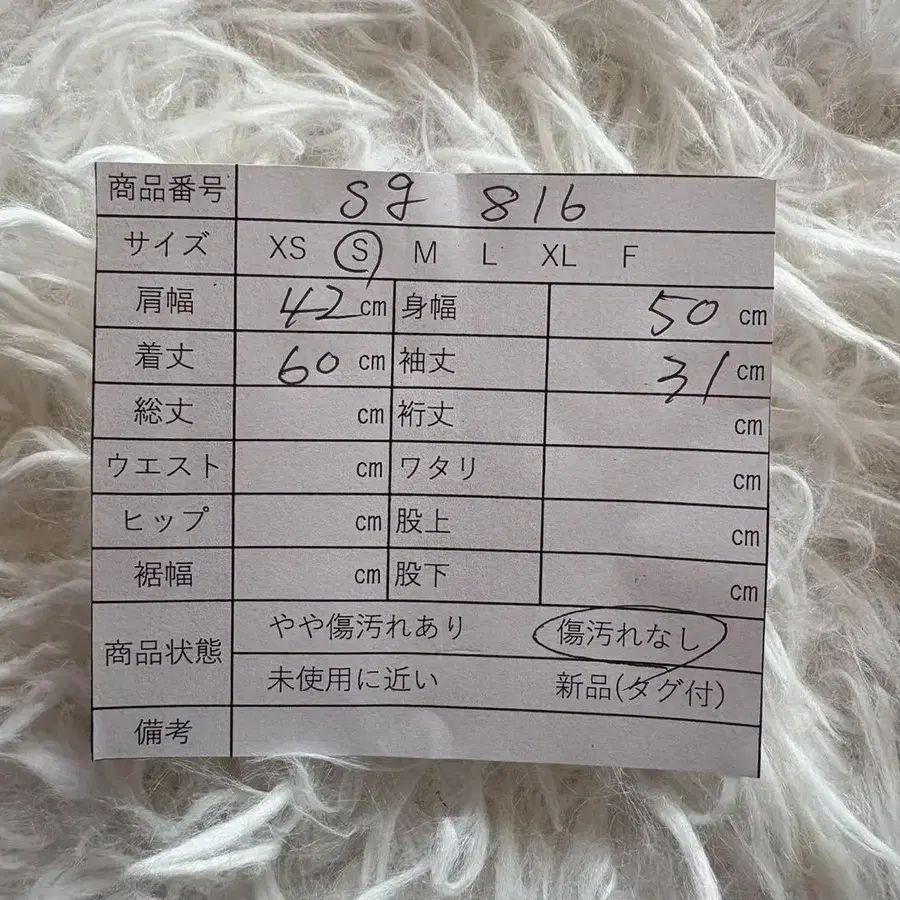 商品番号 sg 816
サイズ XS S M L XL F
肩幅 42 cm 身幅 50 cm
着丈 60 cm 袖丈 31 cm
総丈 cm 裄丈 cm
ウエスト cm ワタリ cm
ヒップ cm 股上 cm
裾幅 cm 股下 cm
商品状態 やや傷汚れあり 傷汚れなし
未使用に近い 新品(タグ付)
備考